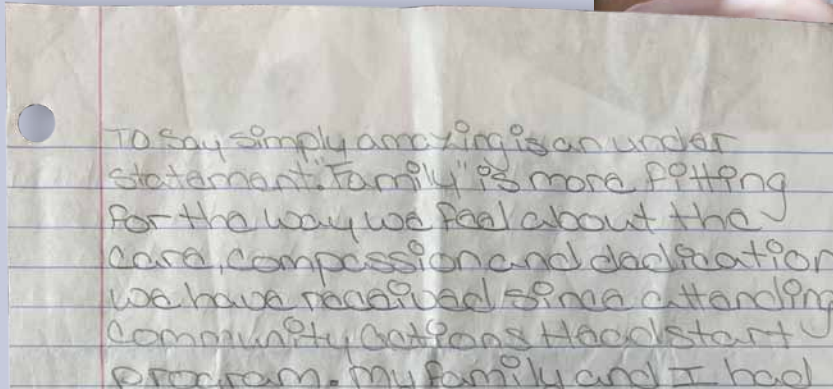 To say simply amazing is an under
statement. "Family" is more fitting
for the way we feel about the
care, compassion and dedication
we have received since attending
Community Actions Head start
program. My family and I had